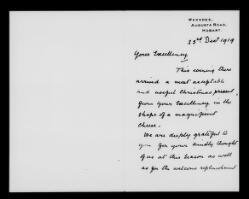 Augusta Road,
Hobart.
23rd Decr 1919
Your Excellency
This evening there
arrived a most acceptable
and useful Christmas present
from your Excellency in the
shape of a magnificent
cheese.
We are deeply grateful to
you for your kindly thought
of us at this season as well
as for the welcome replenishment